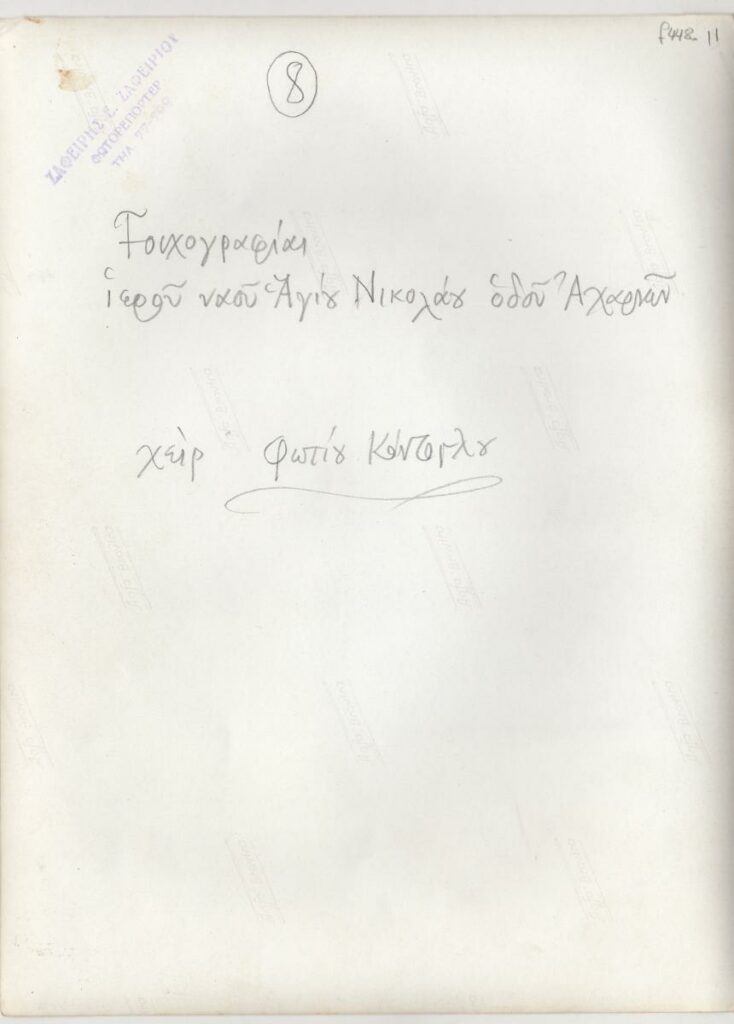 f448 11
8
ΖΑΦΕΙΡΗΣ Σ. ΖΑΦΕΙΡΙΟΥ
ΦΩΤΟΡΕΠΟΡΤΕΡ
ΤΗΛ.
Τοιχογραφίαι
ἱεροῦ ναοῦ Ἁγίου Νικολάου ὁδοῦ Ἀχαρνῶν
χεὶρ Φωτίου Κόντογλου